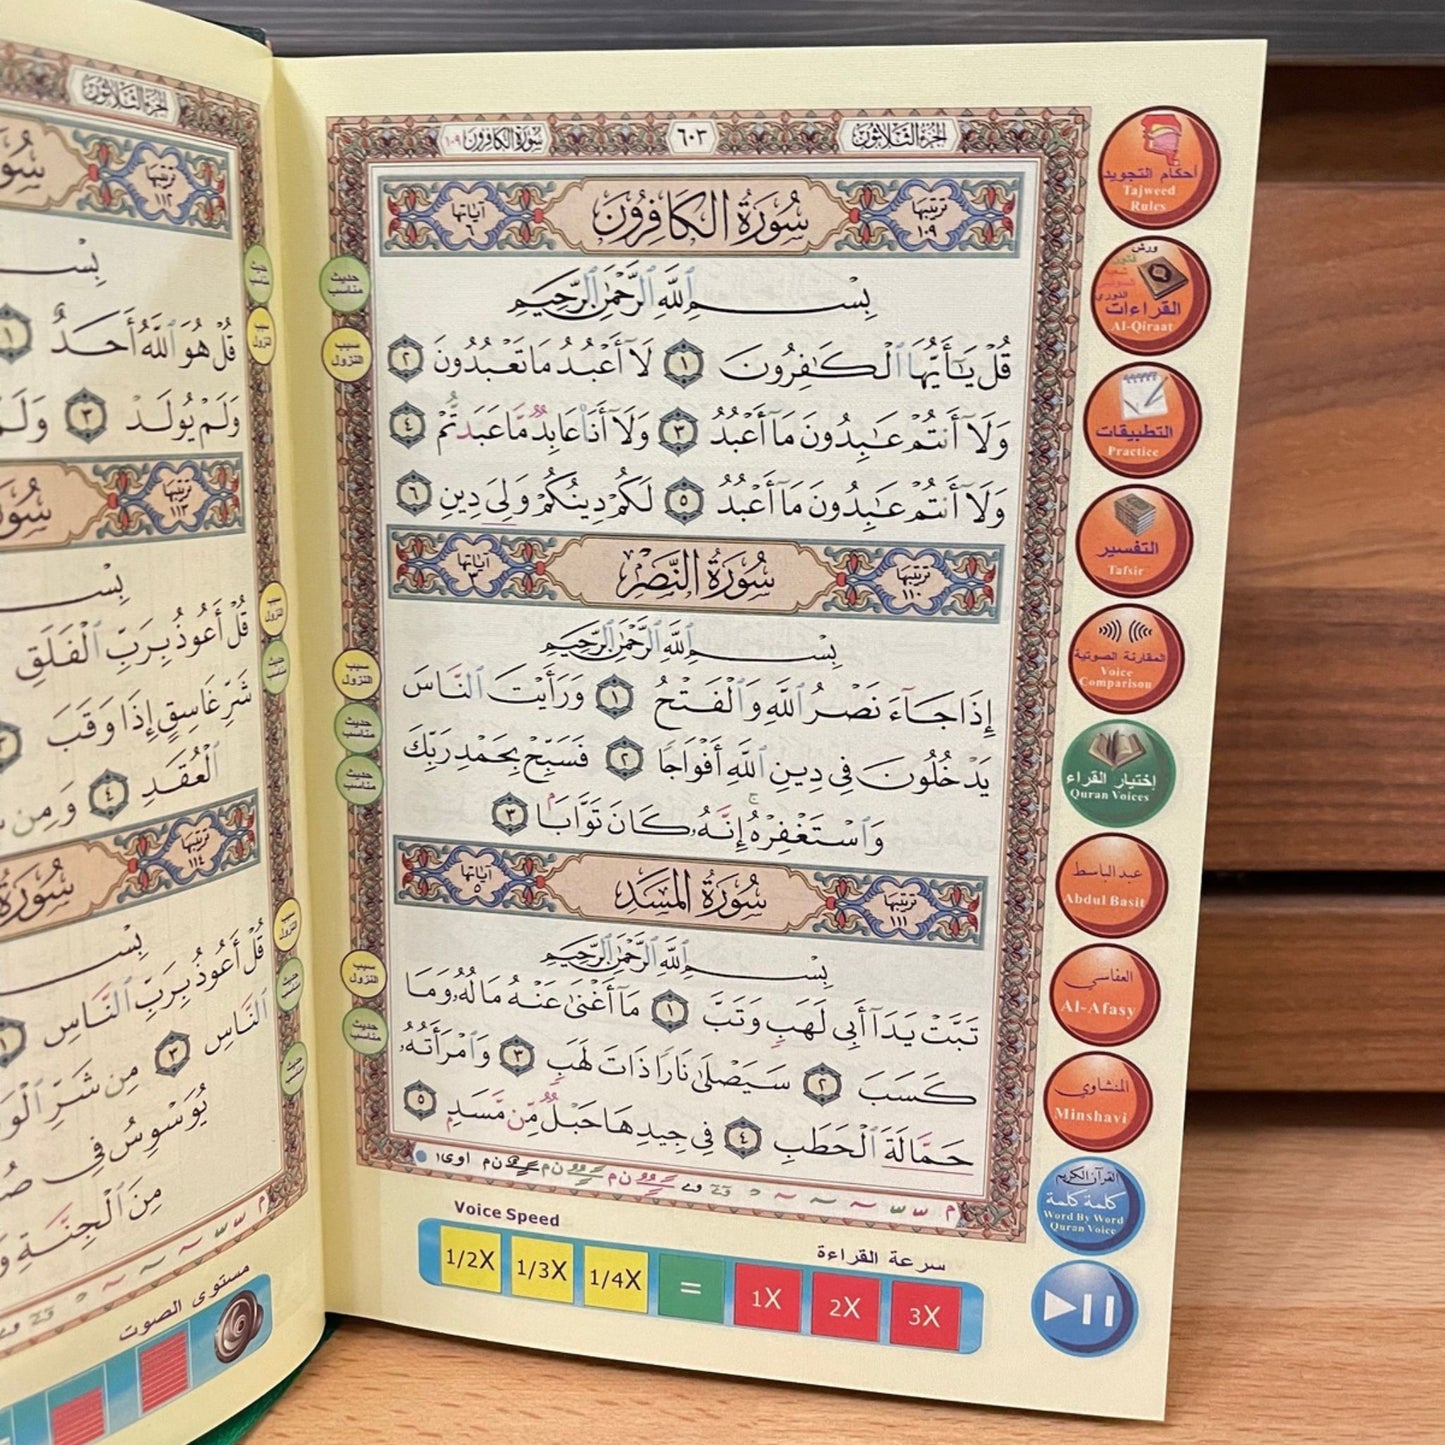 الجزء الثلاثون
٦٠٣
سورة الكافرون ١٠٩
ترتيبها ١٠٩
سُورَةُ الكَافِرُونَ
آياتها ٦
بِسْمِ ٱللَّهِ ٱلرَّحْمَٰنِ ٱلرَّحِيمِ
قُلْ يَٰٓأَيُّهَا ٱلْكَٰفِرُونَ ١ لَآ أَعْبُدُ مَا تَعْبُدُونَ ٢
وَلَآ أَنتُمْ عَٰبِدُونَ مَآ أَعْبُدُ ٣ وَلَآ أَنَا۠ عَابِدٌ مَّا عَبَدتُّمْ ٤
وَلَآ أَنتُمْ عَٰبِدُونَ مَآ أَعْبُدُ ٥ لَكُمْ دِينُكُمْ وَلِىَ دِينِ ٦
ترتيبها ١١٠
سُورَةُ النَّصْرِ
آياتها ٣
بِسْمِ ٱللَّهِ ٱلرَّحْمَٰنِ ٱلرَّحِيمِ
إِذَا جَآءَ نَصْرُ ٱللَّهِ وَٱلْفَتْحُ ١ وَرَأَيْتَ ٱلنَّاسَ
يَدْخُلُونَ فِى دِينِ ٱللَّهِ أَفْوَاجًا ٢ فَسَبِّحْ بِحَمْدِ رَبِّكَ
وَٱسْتَغْفِرْهُ ۚ إِنَّهُۥ كَانَ تَوَّابًۢا ٣
ترتيبها ١١١
سُورَةُ المَسَدِ
آياتها ٥
بِسْمِ ٱللَّهِ ٱلرَّحْمَٰنِ ٱلرَّحِيمِ
تَبَّتْ يَدَآ أَبِى لَهَبٍ وَتَبَّ ١ مَآ أَغْنَىٰ عَنْهُ مَالُهُۥ وَمَا
كَسَبَ ٢ سَيَصْلَىٰ نَارًا ذَاتَ لَهَبٍ ٣ وَٱمْرَأَتُهُۥ
حَمَّالَةَ ٱلْحَطَبِ ٤ فِى جِيدِهَا حَبْلٌ مِّن مَّسَدٍۭ ٥
حديث مناسب
سبب النزول
سبب النزول
حديث مناسب
حديث مناسب
سبب النزول
حديث مناسب
Voice Speed
سرعة القراءة
1/2X 1/3X 1/4X = 1X 2X 3X
أحكام التجويد
Tajweed
Rules
ورش
قالون
شعبة
السوسي
الدوري
القراءات
Al-Qiraat
التطبيقات
Practice
التفسير
Tafsir
المقارنة الصوتية
Voice
Comparison
إختيار القراء
Quran Voices
عبد الباسط
Abdul Basit
العفاسي
Al-Afasy
المنشاوي
Minshavi
القرآن الكريم
كلمة كلمة
Word By Word
Quran Voice
الجزء الثلاثون
ترتيبها ١١٢
بِسْ
قُلْ هُوَ ٱللَّهُ أَحَدٌ ١
وَلَمْ يُولَدْ ٣ وَلَمْ
ترتيبها ١١٣
بِسْ
قُلْ أَعُوذُ بِرَبِّ ٱلْفَلَقِ
شَرِّ غَاسِقٍ إِذَا وَقَبَ
ٱلْعُقَدِ ٤ وَمِن
ترتيبها ١١٤
بِسْ
قُلْ أَعُوذُ بِرَبِّ ٱلنَّاسِ ١
ٱلنَّاسِ ٣ مِن شَرِّ
يُوَسْوِسُ فِى
مِنَ ٱلْجِنَّةِ
مستوى الصوت